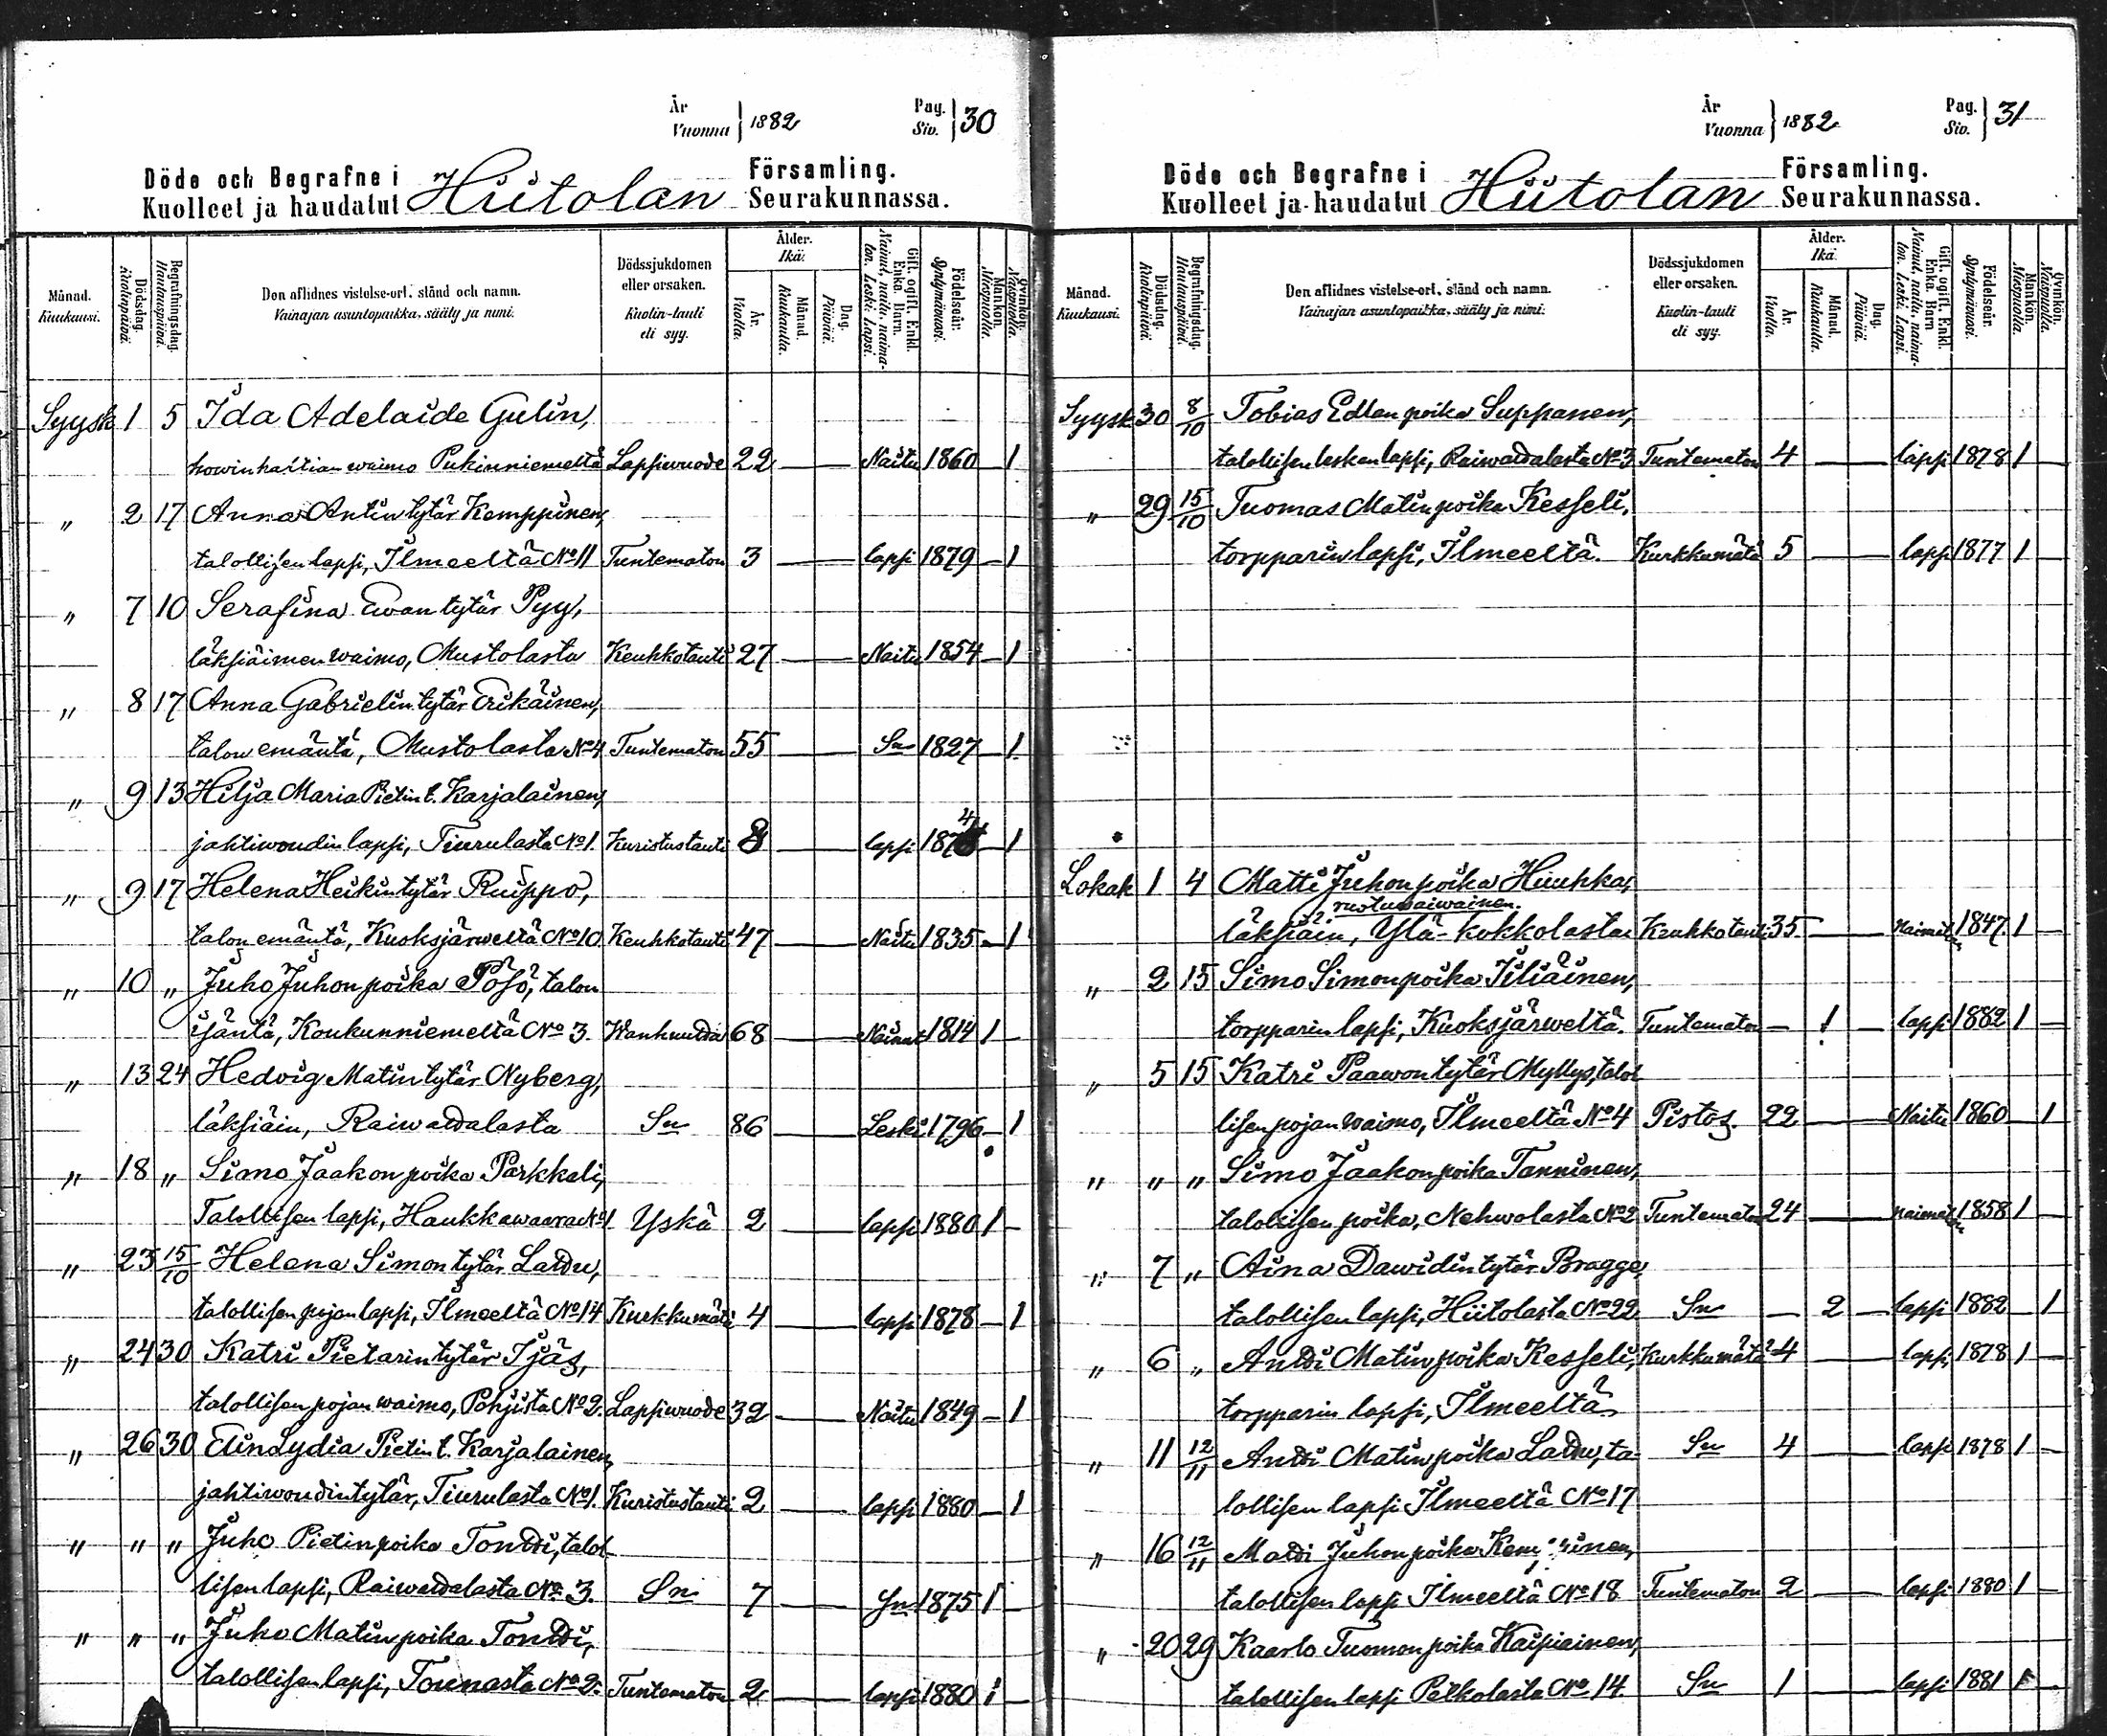 År
Vuonna } 1882
Pag.
Siv. } 30
Döde och Begrafne i
Kuolleet ja haudatut Hiitolan Församling.
Seurakunnassa.
Månad.
Kuukausi.
Dödsdag.
Kuolinpäivä.
Begrafningsdag.
Hautauspäivä.
Den aflidnes vistelse-ort, stånd och namn.
Vainajan asuntopaikka, sääty ja nimi.
Dödssjukdomen
eller orsaken.
Kuolin-tauti
eli syy.
Ålder.
Ikä.
År.
Vuotta.
Månad.
Kuukautta.
Dag.
Päivää.
Gift, ogift, Enkl.
Enka, Barn.
Nainut, naitu, naima-
ton, Leski, Lapsi.
Födelseår.
Syntymävuosi.
Mankön.
Miespuolia.
Qvinkön.
Naispuolia.
Syysk 1 5 Ida Adelaide Gulin,
howinhaltian waimo Pukinniemeltä Lapsiwuode 22 — Naitu 1860 — 1
" 2 17 Anna Antin tytär Kemppinen,
talollisen lapsi, Ilmeeltä No 11 Tuntematon 3 — lapsi 1879 — 1
" 7 10 Serafina Ewan tytär Pyy,
läksiäimen waimo, Mustolasta Keuhkotauti 27 — Naitu 1854 — 1
" 8 17 Anna Gabrielin tytär Erikäinen,
talon emäntä, Mustolasta No 4 Tuntematon 55 — Sn 1827 — 1
" 9 13 Hilja Maria Pietin t. Karjalainen,
jahtiwoudin lapsi, Tiurulasta No 1. Kuristustauti 8 — lapsi 1874 — 1
" 9 17 Helena Heikin tytär Ruippo,
talon emäntä, Kuoksjärweltä No 10 Keuhkotauti 47 — Naitu 1835 — 1
" 10 " Juho Juhon poika Pösö, talon
isäntä, Koukunniemeltä No 3. Wanhuutta 68 — Nainut 1814 1 —
" 13 24 Hedvig Matin tytär Nyberg,
läksiäin, Raiwattalasta Sn 86 — Leski 1796 — 1
" 18 " Simo Jaakon poika Parkkali,
Talollisen lapsi, Haukkawaara No 1 Yskä 2 — lapsi 1880 1 —
" 23 15/10 Helena Simon tytär Lattu,
talollisen pojan lapsi, Ilmeeltä No 14 Kurkkumätä 4 — lapsi 1878 — 1
" 24 30 Katri Pietarin tytär Ijäs,
talollisen pojan waimo, Pohjista No 2. Lapsiwuode 32 — Naitu 1849 — 1
" 26 30 Elin Lydia Pietin t. Karjalainen,
jahtiwoudin tytär, Tiurulasta No 1. Kuristustauti 2 — lapsi 1880 — 1
" " " Juho Pietin poika Tontti, talol-
lisen lapsi, Raiwattalasta No 3. Sn 7 Sn 1875 1 —
" " " Juho Matin poika Tontti,
talollisen lapsi, Tounasta No 2. Tuntematon 2 — lapsi 1880 1 —
År
Vuonna } 1882
Pag.
Siv. } 31
Döde och Begrafne i
Kuolleet ja haudatut Hiitolan Församling.
Seurakunnassa.
Månad.
Kuukausi.
Dödsdag.
Kuolinpäivä.
Begrafningsdag.
Hautauspäivä.
Den aflidnes vistelse-ort, stånd och namn.
Vainajan asuntopaikka, sääty ja nimi.
Dödssjukdomen
eller orsaken.
Kuolin-tauti
eli syy.
Ålder.
Ikä.
År.
Vuotta.
Månad.
Kuukautta.
Dag.
Päivää.
Gift, ogift, Enkl.
Enka, Barn
Nainut, naitu, naima-
ton, Leski, Lapsi.
Födelseår.
Syntymävuosi.
Mankön.
Miespuolia.
Qvinkön.
Naispuolia.
Syysk 30 8/10 Tobias Edlan poika Suppanen,
talollisen lesken lapsi, Raiwattalasta No 3 Tuntematon 4 — lapsi 1878 1 —
" 29 15/10 Tuomas Matin poika Kesseli,
torpparin lapsi, Ilmeeltä. Kurkkumätä 5 — lapsi 1877 1 —
Lokak 1 4 Matti Juhon poika Hiuhka,
ruotuwaiwainen.
läksiäin, Ylä-kokkolasta Keuhkotauti 35 — naimaton 1847 1 —
" 2 15 Simo Simon poika Iiliäinen,
torpparin lapsi, Kuoksjärweltä. Tuntematon — 1 — lapsi 1882 1 —
" 5 15 Katri Paawon tytär Myllys, talol-
lisen pojan waimo, Ilmeeltä No 4 Pistos. 22 — Naitu 1860 — 1
" " " Simo Jaakon poika Tanninen,
talollisen poika, Nehwolasta No 2 Tuntematon 24 — naimaton 1858 1 —
" 7 " Aina Dawidin tytär Bragge,
talollisen lapsi, Hiitolasta No 22 Sn — 2 — lapsi 1882 — 1
" 6 " Antti Matin poika Kesseli, Kurkkumätä 4 — lapsi 1878 1 —
torpparin lapsi, Ilmeeltä
" 11 12/11 Antti Matin poika Lattu, ta- Sn 4 — lapsi 1878 1 —
lollisen lapsi Ilmeeltä No 17
" 16 12/11 Matti Juhon poika
talollisen lapsi Ilmeeltä No 18 Tuntematon 2 — lapsi 1880 1 —
" 20 29 Kaarlo Tuomon poika Kaipiainen,
talollisen lapsi Petkolasta No 14 Sn 1 — lapsi 1881 1 —